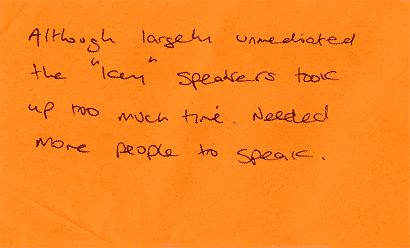 Although largely unmediated
the "key" speakers took
up too much time. Needed
more people to speak.